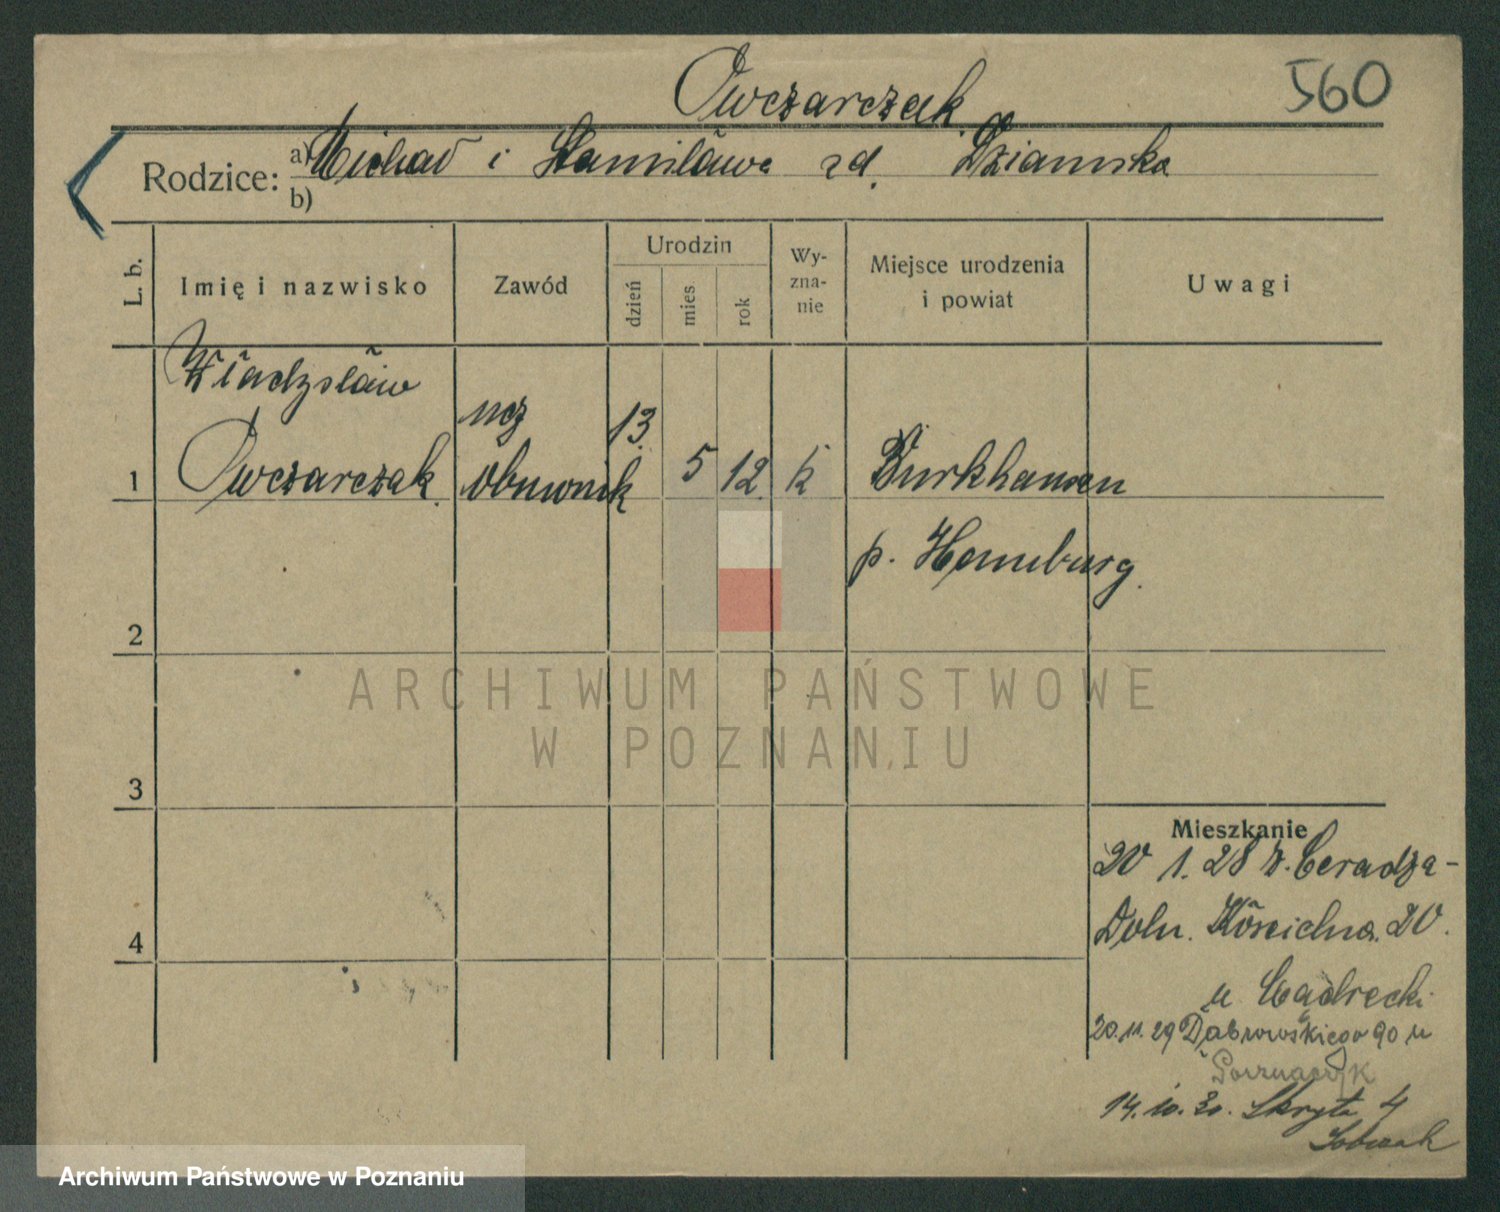 560
Owczarczak
Rodzice: a) Michał i Stanisława zd. Dziamska
b)
L. b. Imię i nazwisko Zawód Urodzin dzień mies rok Wy-zna-nie Miejsce urodzenia i powiat Uwagi
Władysław
1 Owczarczak ucz obuwnik 13. 5 12. k Burkhausen
p. Hamburg.
2
ARCHIWUM PAŃSTWOWE
W POZNANIU
3
Mieszkanie
20 1. 28 z. Ceradza-
4 Doln. Kościelna. 20.
u
20.11.29 Dąbrowskiego 90 u
14.10.30. Skryta 4
Sobczak
Archiwum Państwowe w Poznaniu